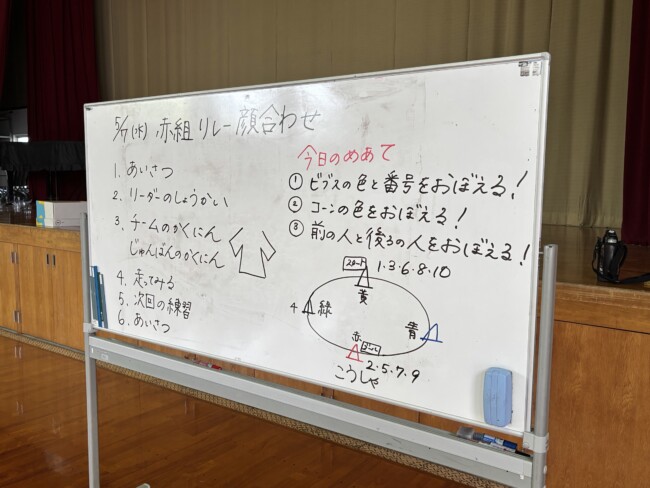 5/7(水) 赤組 リレー顔合わせ
1. あいさつ
2. リーダーのしょうかい
3. チームのかくにん
じゅんばんのかくにん
4. 走ってみる
5. 次回の練習
6. あいさつ
今日のめあて
① ビブスの色と番号をおぼえる!
② コーンの色をおぼえる!
③ 前の人と後ろの人をおぼえる!
スタート 1・3・6・8・10
黄
4 緑
青
赤 ゴール
2・5・7・9
こうしゃ